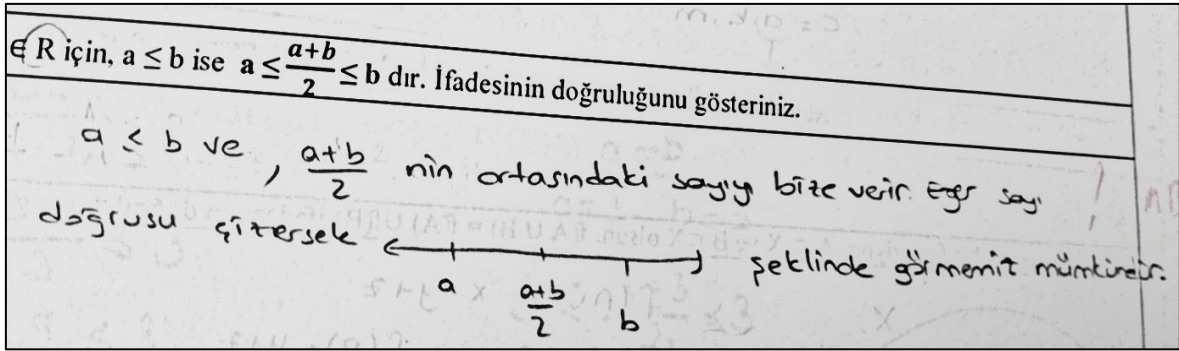 ∈ R için, a ≤ b ise a ≤ a+b/2 ≤ b dır. İfadesinin doğruluğunu gösteriniz.
a ≤ b ve, a+b/2 nin ortasındaki sayıyı bize verir. Eğer sayı
doğrusu çizersek şeklinde görmemiz mümkündür.
a a+b/2 b